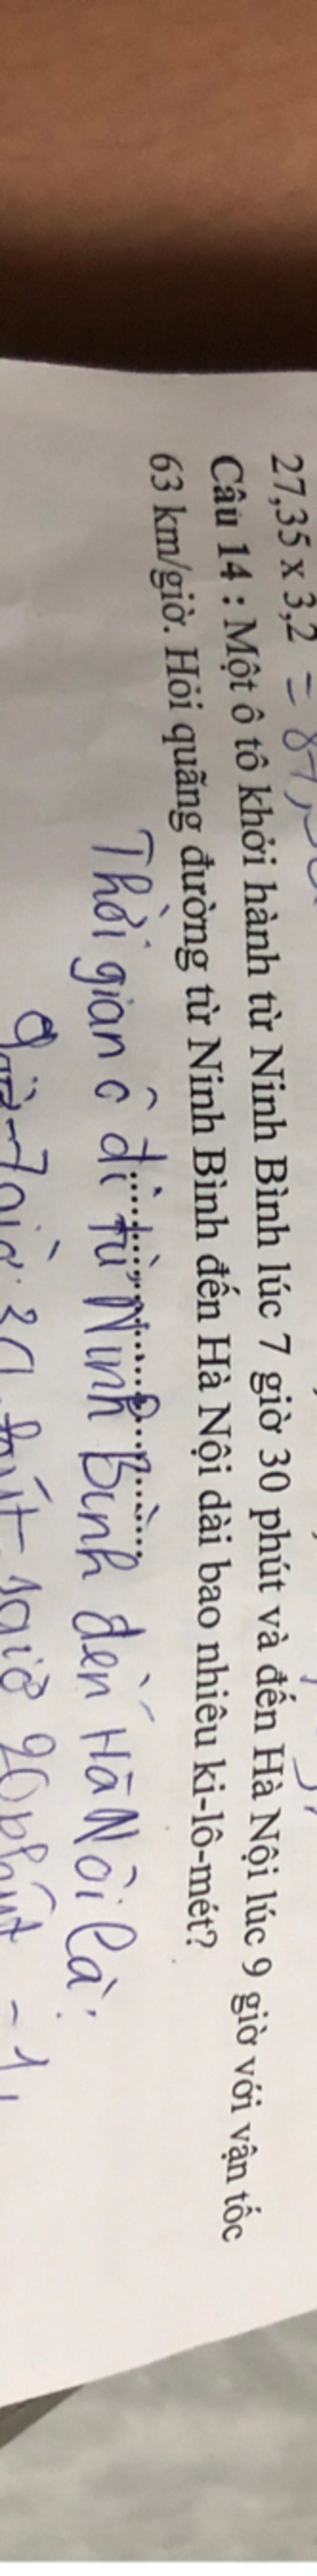 27,35 x 3,2 = 87,
Câu 14 : Một ô tô khởi hành từ Ninh Bình lúc 7 giờ 30 phút và đến Hà Nội lúc 9 giờ với vận tốc
63 km/giờ. Hỏi quãng đường từ Ninh Bình đến Hà Nội dài bao nhiêu ki-lô-mét?
Thời gian ô đi từ Ninh Bình đến Hà Nội là:
9giờ-7giờ 30 phút